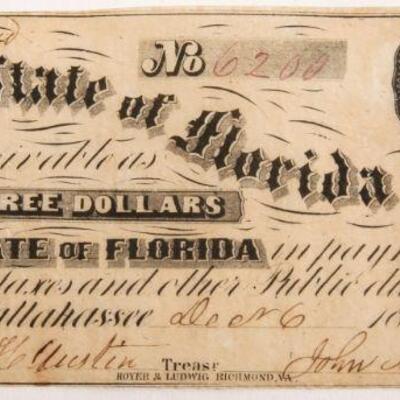 No 6200
State of Florida
ivable as
REE DOLLARS
ATE OF FLORIDA in paym
taxes and other Public du
allahassee Dec 6 18
Austin Treasr John
HOYER & LUDWIG RICHMOND, VA.